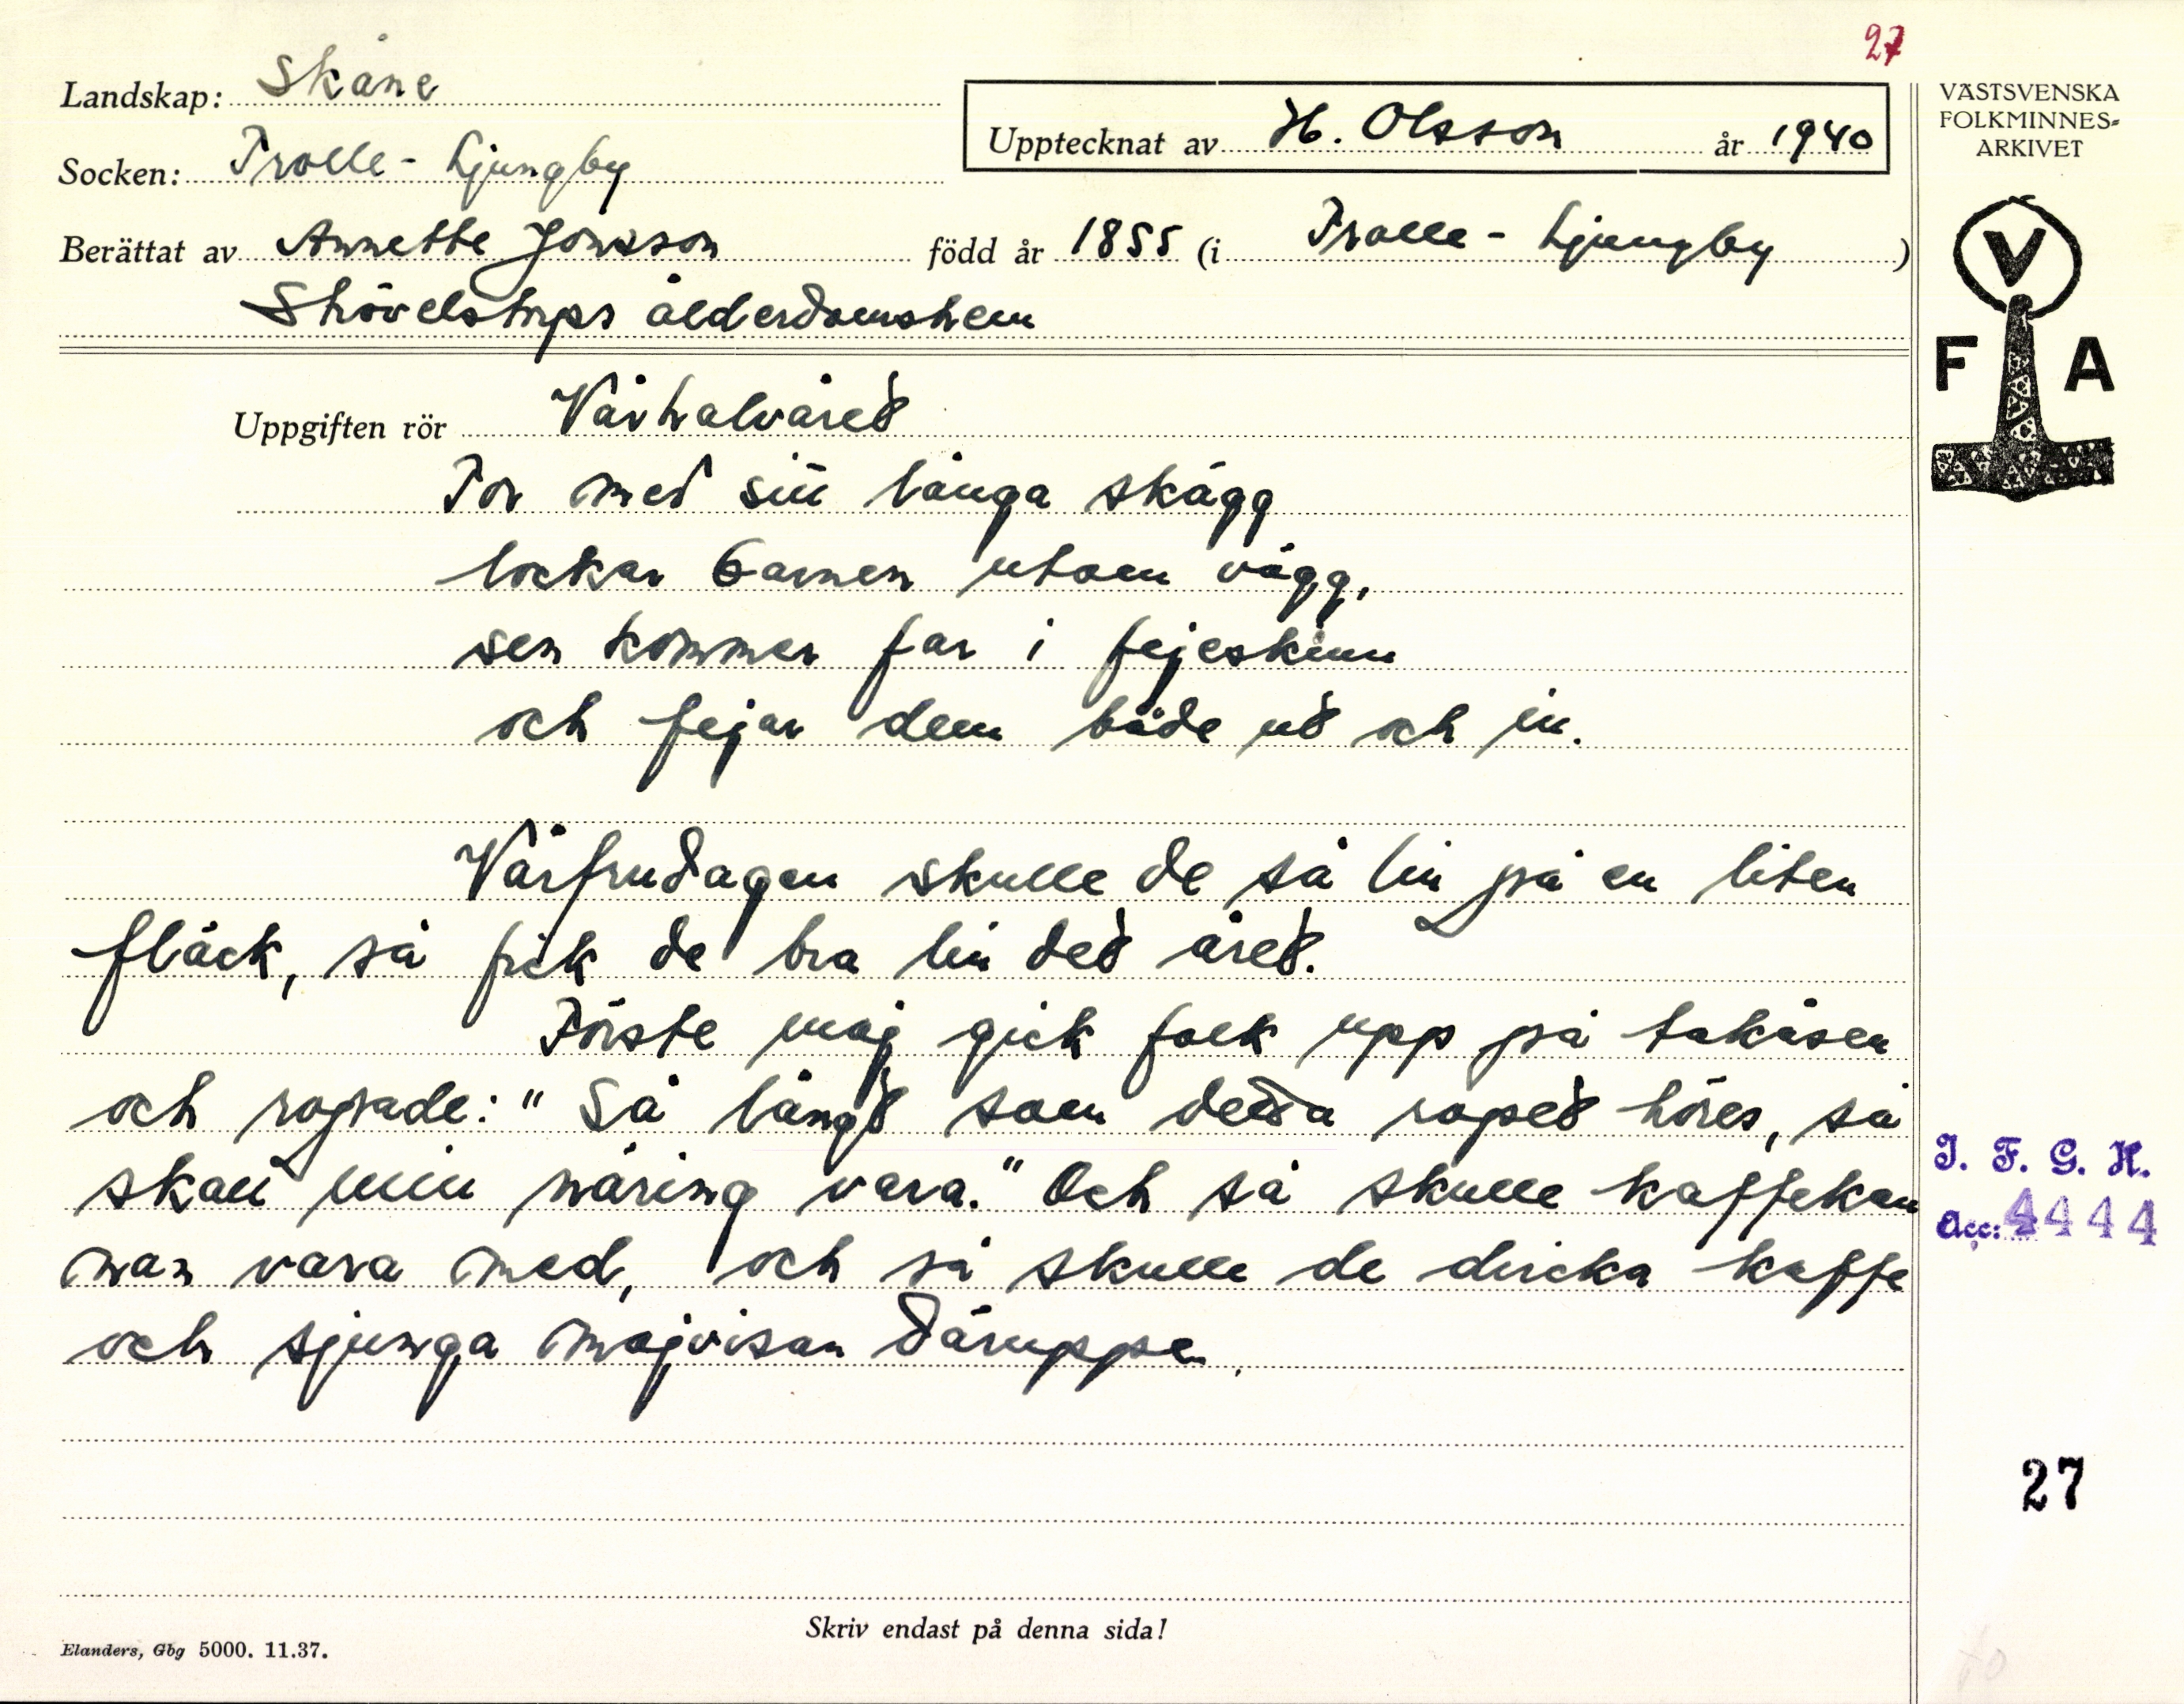 27
Landskap: Skåne
Socken: Trolle-Ljungby
Upptecknat av H. Olsson år 1940
VÄSTSVENSKA
FOLKMINNES-
ARKIVET
Berättat av Annette Jönsson född år 1855 (i Trolle-Ljungby)
ålderdomshem
V
F A
Uppgiften rör Vårhalvåret
Tor med sitt långa skägg
lockar barnen utom vägg,
sen kommer far i fejeskinn
och fejar dem både ut och in.
Vårfrudagen skulle de så lin på en liten
fläck, så fick de bra lin det året.
Förste maj gick folk upp på takåsen
och ropade: "Så långt som detta ropet höres, så
skall min näring vara." Och så skulle kaffekan
nan vara med, och så skulle de dricka kaffe
och sjunga majvisan däruppe.
I. F. G. H.
Acc: 4444
27
Skriv endast på denna sida!
Elanders, Gbg 5000. 11.37.